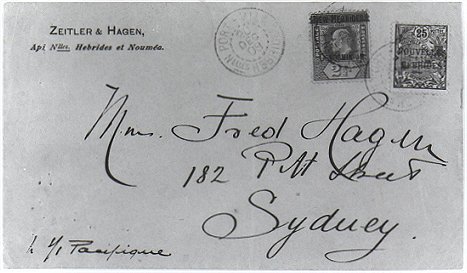 ZEITLER & HAGEN,
Api Nlles. Hebrides et Nouméa.
NEW HEBRIDES
25
NOUVELLES
HEBRIDES
Mrs. Fred Hagen
182 Pitt Street
Sydney.
Pacifique